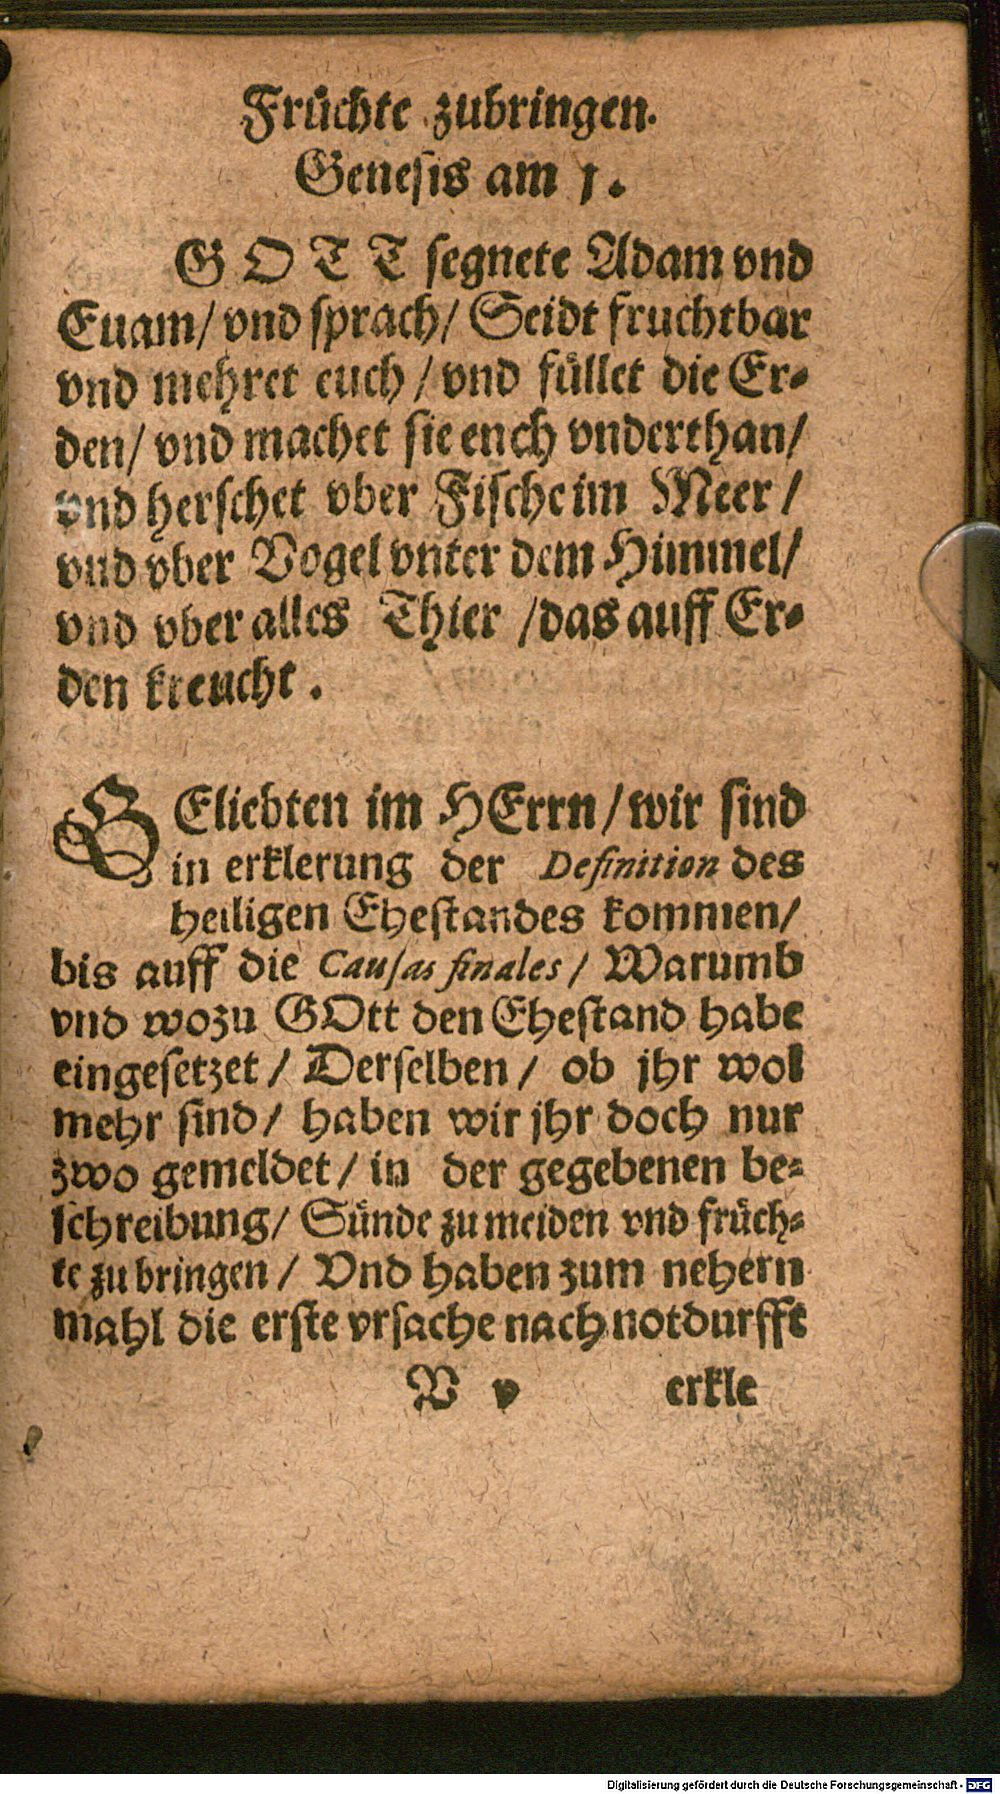 Fruͤchte zubringen.
Genesis am 1.
GOTT segnete Adam vnd
Euam/ vnd sprach/ Seidt fruchtbar
vnd mehret euch / vnd fuͤllet die Er-
den/ vnd machet sie ench vnderthan/
vnd herschet vber Fische im Meer /
vnd vber Vogel vnter dem Himmel/
vnd vber alles Thier /das auff Er-
den kreucht .
GEliebten im HErrn/ wir sind
in erklerung der Definition des
heiligen Ehestandes kommen/
bis auff die Causas finales / Warumb
vnd wozu GOtt den Ehestand habe
eingesetzet / Derselben / ob jhr wol
mehr sind/ haben wir jhr doch nur
zwo gemeldet / in der gegebenen be-
schreibung/ Suͤnde zu meiden vnd fruͤch-
te zu bringen / Vnd haben zum nehern
mahl die erste vrsache nach notdurfft
V v erkle
Digitalisierung gefördert durch die Deutsche Forschungsgemeinschaft - DFG